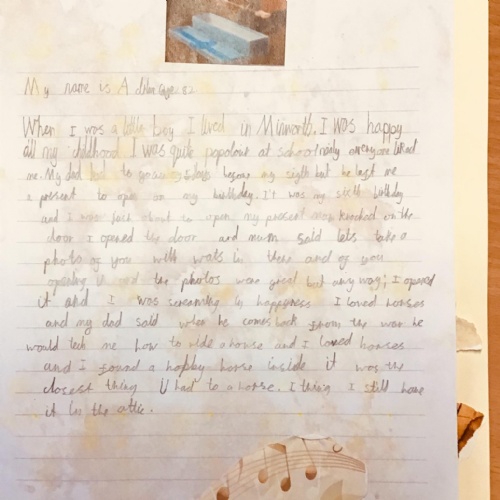 My name is A
When I was a little boy I lived in Minworth. I was happy
all my childhood I was quite popolour at school mainly everyone liked
me. My dad had to go away days before my sixth but he left me
a present to open on my birthday. It was my sixth birthday
and I was about to open my present mum knocked on the
door I opened the door and mum said lets take a
photo of you with wats in there and of you
opening it and the photos were great but any way; I opened
it and I was screaming in happyness I loved horses
and my dad said when he comes back from the war he
would teach me how to ride a horse and I loved horses
and I found a hobby horse inside it was the
closest thing I had to a horse. I think I still have
it in the attic.